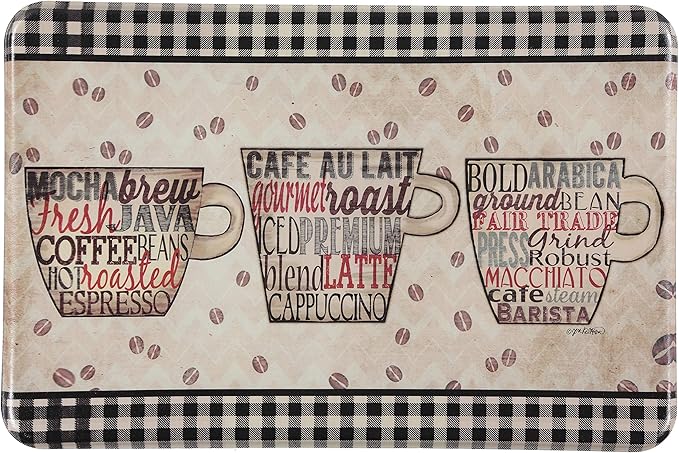 MOCHA brew
Fresh JAVA
COFFEE BEANS
HOT roasted
ESPRESSO
CAFE AU LAIT
gourmet roast
ICED PREMIUM
blend LATTE
CAPPUCCINO
BOLD ARABICA
ground BEAN
FAIR TRADE
PRESS Grind
Robust
MACCHIATO
cafe steam
BARISTA